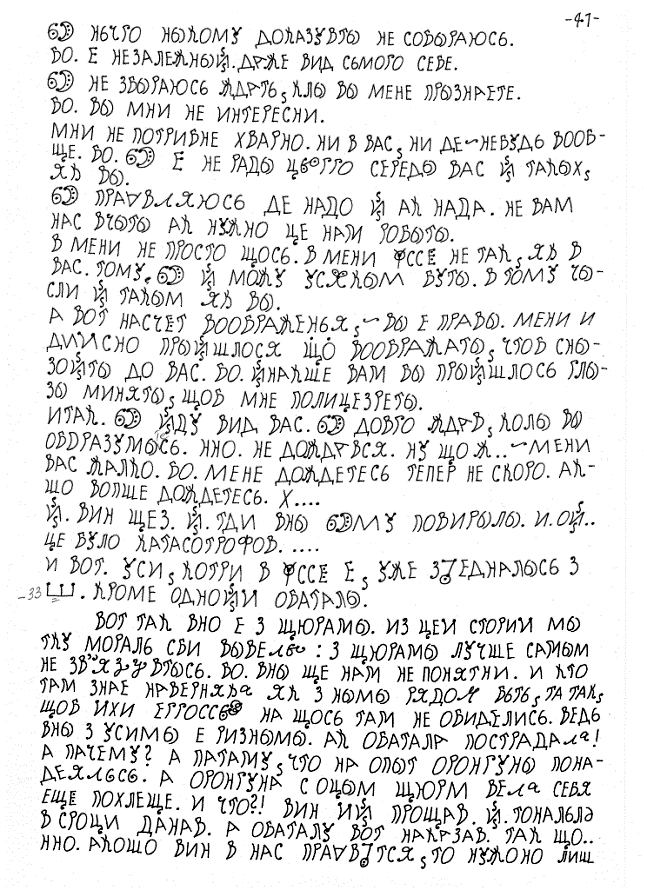 -41-
НЫЧРО НЫКОМУ ДОКАЗУВТЫ НЕ СОВЫРАЮСЬ.
ВО. Е НЕЗАЛЕЖНЫЙ. ДАЖЕ ВИД СЬМОГО СЕБЕ.
НЕ ЗВЫРАЮСЬ ЖДАТЬ, КЛЫ ВЫ МЕНЕ ПРЫЗНАЕТЕ.
ВО. ВЫ МНИ НЕ ИНТЕРЕСНИ.
МНИ НЕ ПОТРИВНЕ ХВАРНО. НИ В ВАС, НИ ДЕ-НЕВУДЬ ВООВ-
ЩЕ. ВО. Е НЕ РАДЫ СЕРЕДЫ ВАС Й ТАКЫХ,
ЯК ВЫ.
ПРАВЛЯЮСЬ ДЕ НАДО Й АК НАДА. НЕ ВАМ
НАС ВЧЫТЫ АК НУЖНО ЦЕ НАМ РОВЫТЫ.
В МЕНИ НЕ ПРОСТО ЩОСЬ. В МЕНИ ФССЕ НЕ ТАК, ЯК В
ВАС. ТОМУ. Й МОЖУ УСЯКЫМ ВУТЫ. В ТОМУ ЧЫ-
СЛИ Й ТАКЫМ ЯК ВЫ.
А ВОТ НАСЧЕТ ВООВРАЖЕНЬЯ, - ВЫ Е ПРАВЫ. МЕНИ И
ДИИСНО ПРЫЙШЛОСЯ ЩО ВООВРАЖАТЫ, ЧТОВ СНЫ-
ЗОЙТЫ ДО ВАС. ВО. ЙНАКШЕ ВАМ ВЫ ПРЫЙШЛОСЬ ГЛЫ-
ЗЫ МИНЯТЫ, ЩОВ МНЕ ПОЛИЦЕЗРЕТЫ.
ИТАК. ЙДУ ВИД ВАС. ДОВГО ЖДАВ, КОЛЫ ВЫ
ОВДРАЗУМЫСЬ. ННО. НЕ ДОЖДАВСЯ. НУ ЩО Ж.. - МЕНИ
ВАС ЖАЛКО. ВО. МЕНЕ ДОЖДЕТЕСЬ ТЕПЕР НЕ СКОРО. АК-
ЩО ВОПШЕ ДОЖДЕТЕСЬ. Х....
Й. ВИН ЩЕЗ. Й. ТДИ ВНЫ ПОВИРЫЛЫ. И. ОЙ..
ЦЕ ВУЛО КАТАСОТРОФОВ. ....
И ВОТ. УСИ, КОТРИ В ФССЕ Е, УЖЕ ЗЪЕДНАЛЫСЬ З
-33 Щ. КРОМЕ ОДНОЙИ ОВАТАЛЫ.
ВОТ ТАК ВНО Е З ЩЮРАМЫ. ИЗ ЦЕИ СТОРИИ МЫ
ТКУ МОРАЛЬ СВИ ВЫВЕЛЫ: З ЩЮРАМЫ ЛУЧШЕ САМЫМ
НЕ ЗВ'ЯЗУВТЫСЬ. ВО. ВНЫ ЩЕ НАМ НЕ ПОНЯТНИ. И КТО
ТАМ ЗНАЕ НАВЕРНЯКА ЯК З НЫМЫ РЯДОМ ВЫТЬ, ТА ТАК,
ЩОВ ИХИ НА ЩОСЬ ТАМ НЕ ОВИДЕЛИСЬ. ВЕДЬ
ВНЫ З УСИМЫ Е РИЗНЫМЫ. АК ОВАТАЛА ПОСТРАДАЛА!
А ПАЧЕМУ? А ПАТАМУ, ЧТО НА ОПЫТ ОРОНГУНЫ ПОНА-
ДЕЯЛЬСЬ. А ОРОНГУНА С ОЦЫМ ЩЮРМ ВЕЛА СЕВЯ
ЕЩЕ ПОХЛЕЩЕ. И ЧТО?! ВИН ИЙ ПРОЩАВ. Й. ТОНАЛЫЛЫ
В СРОЦИ ДАНАВ. А ОВАТАЛУ ВОТ НАКАЗАВ. ТАК ЩО..
ННО. АКОШО ВИН В НАС ПРАВЪТСЯ, ТО НУЖОНО ЛИШ